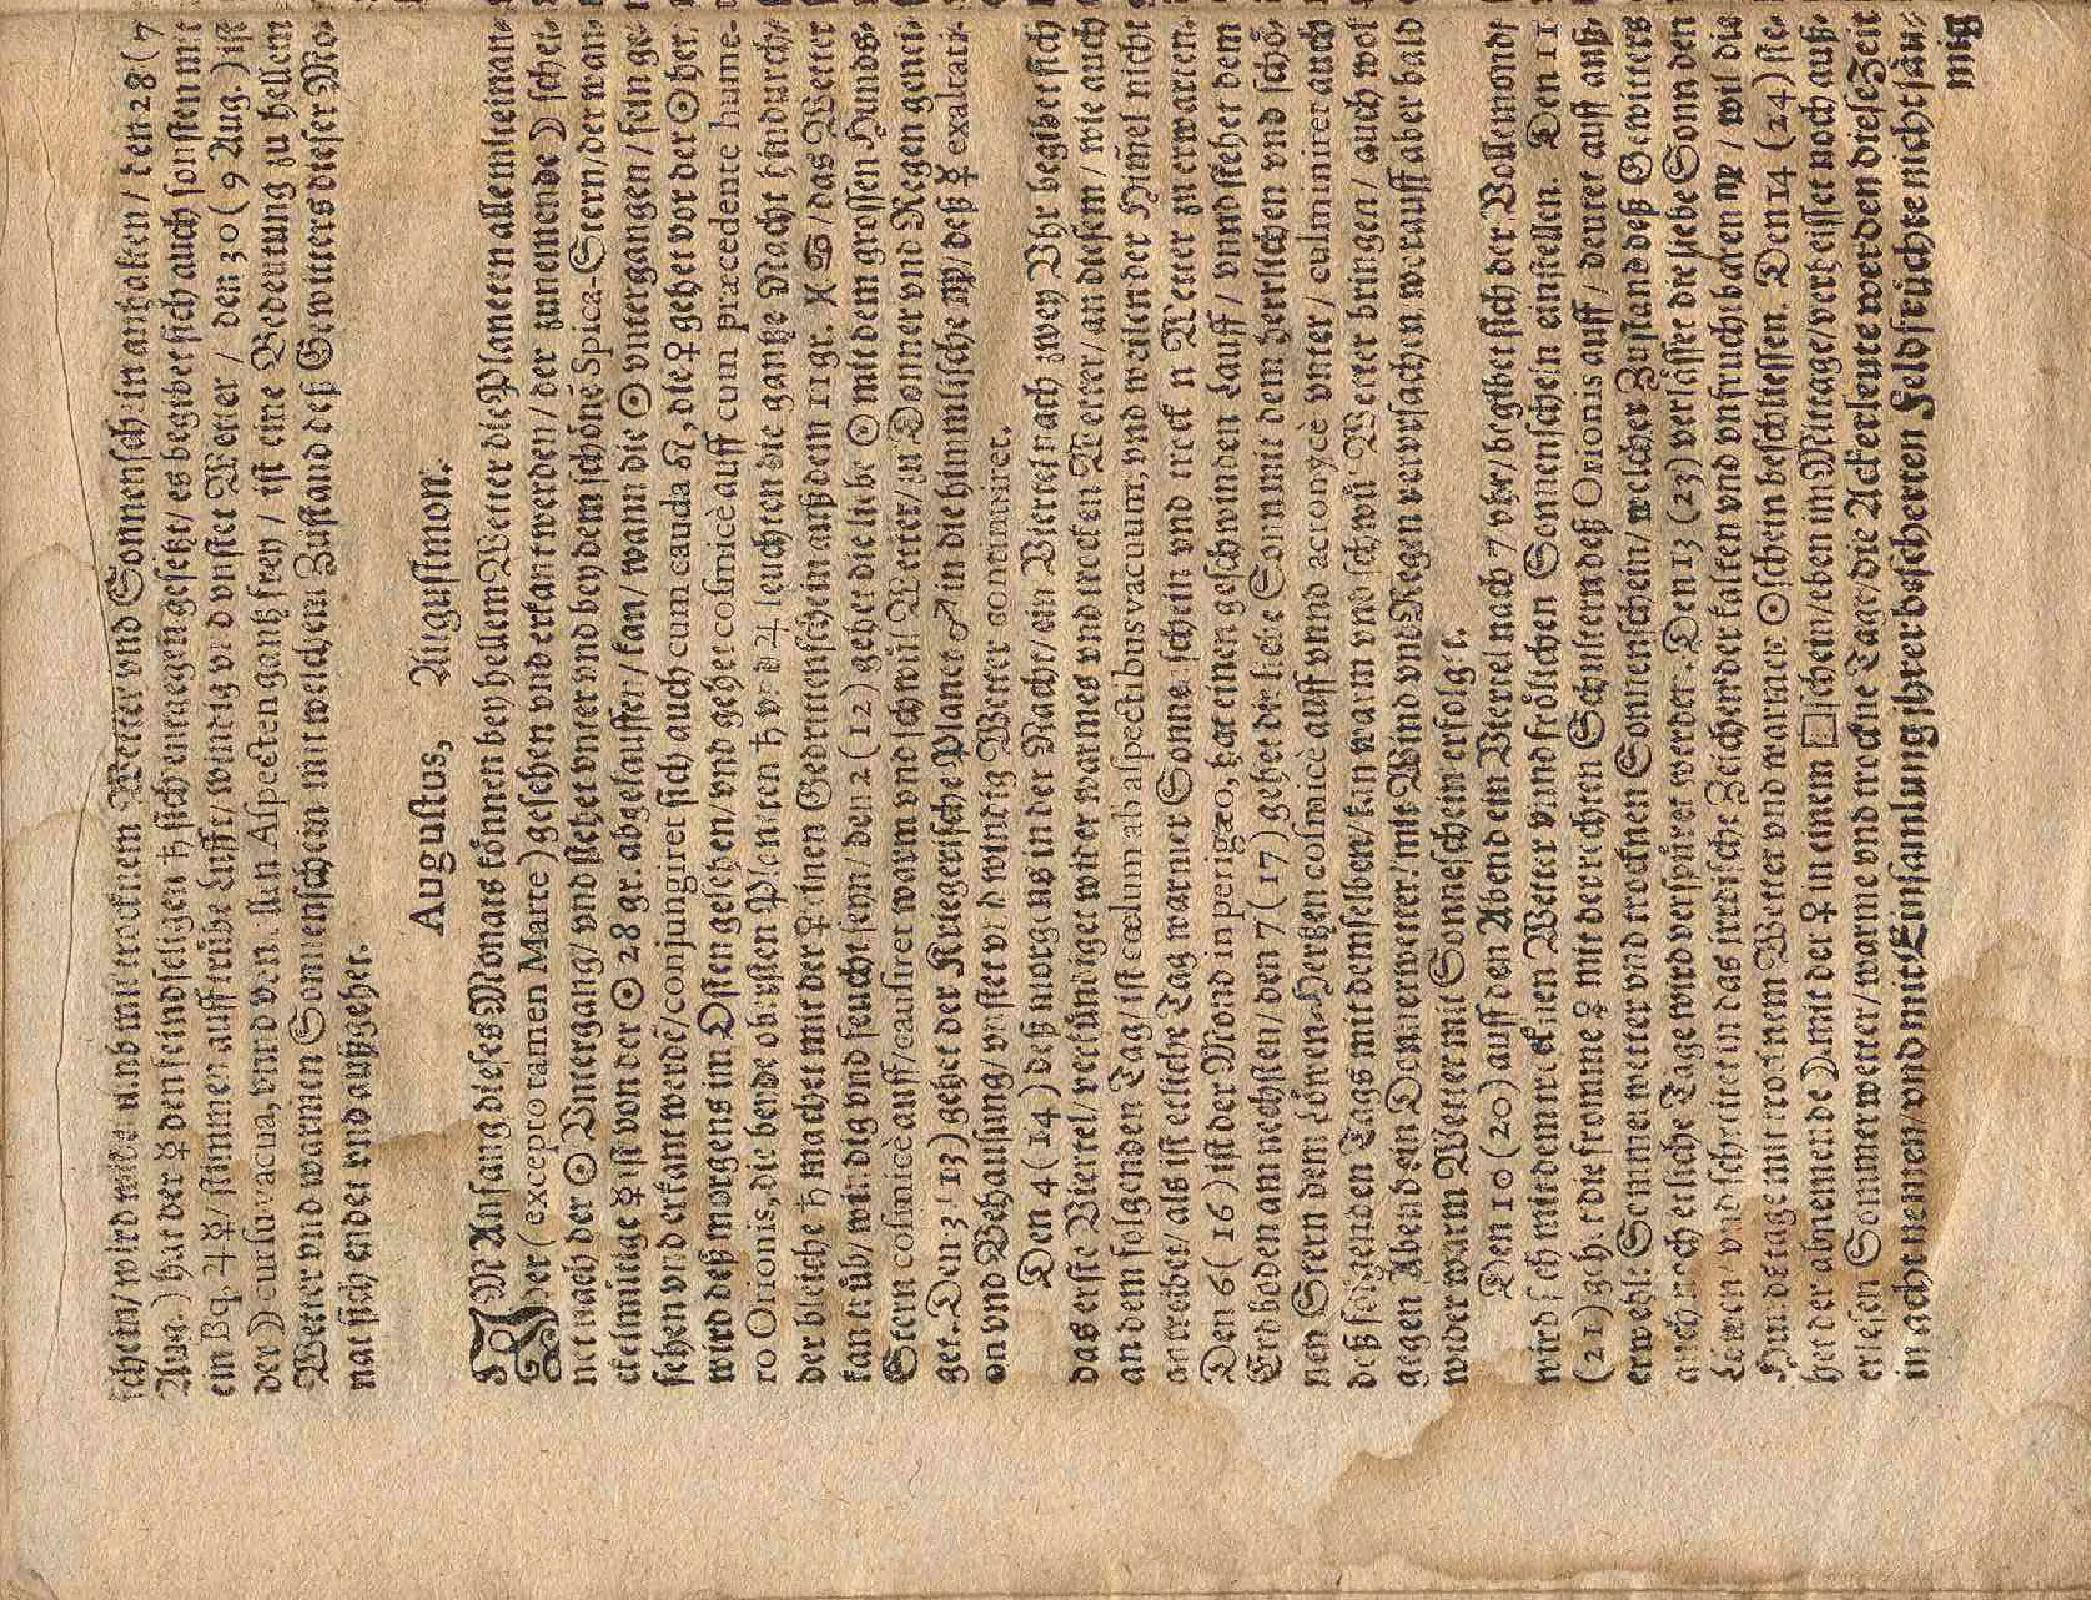 schein/ wird mite wind mit trocknem Wetter vnd Sonnenschein anhalten/ den 28 (7
Aug.) hat der ☿ den feindseligen ♄ sich entgegen gesetzt/ es begibet sich auch sonsten mit
ein Bq. ♃ ☿/ stimmen auff trübe Lufft/ windig vnd vnstet Wetter/ den 30 (9 Aug.) ist
der ☽ cursu vacua, vnnd von allen Aspecten gantz frey/ ist eine Bedeutung zu hellem
Wetter vnd warmen Sonnenschein mit welchem Zustand deß Gewitters dieser Mo-
nat sich endet vnd außgehet.
Augustus, Augustmon.
IM Anfang dieses Monats können bey hellem Wetter die Planeten allemiteinan-
der (excepto tamen Marte) gesehen vnd erkant werden/ der zunemende ☽ schei-
net nach der ☉ Vntergang/ vnd stehet vnter vnd bey dem schöne Spica-Stern/ der wan-
ckelmütige ☿ ist von der ☉ 28 gr. abgelauffen/ kan/ wann die ☉ vntergangen/ fein ge-
sehen vnd erkant werdē/ conjungiret sich auch cum cauda ♌, die ♀ gehet vor der ☉ her/
wird deß morgens im Osten gesehen/ vnd gehet cosmicè auff cum præcedente hume-
ro Orionis, die beyde obersten Planeten ♄ vnd ♃ leuchten die gantze Nacht hindurch/
der bleiche ♄ machet mit der ♀ einen Gedrittenschein auß dem 11 gr. ♓ ♋/ das Wetter
kan trüb/ windig vnd feucht seyn/ den 2 (12) gehet die liebe ☉ mit dem grossen Hunds-
Stern cosmicè auff/ causiret warm vnd schwül Wetter/ zu Donner vnd Regen genei-
get. Den 3 (13) gehet der Kriegerische Planet ♂ in die himmlische ♍/ deß ☿ exaltati-
on vnd Behausung/ vnstet vnd windig Wetter continuiret.
Den 4 (14) deß morgens in der Nacht/ ein Viertel nach zwey Vhr begibet sich
das erste Viertel/ verkündiget witter warmes vnd trocken Wetter/ an diesem/ wie auch
an dem folgenden Tag/ ist cœlum ab aspectibus vacuum, vnd weilen der Himel nicht
antreibet/ als ist etliche Tag warmer Sonnenschein vnd trocken Wetter zu erwarten.
Den 6 (16) ist der Mond in perigæo, hat einen geschwinden Lauff/ vnnd stehet dem
Erdboden am nechsten/ den 7 (17) gehet die liebe Sonn mit dem herrlichen vnd schö-
nen Stern dem Löwen-Hertzen cosmicè auff vnnd acronycè vnter/ culminiret auch
deß folgenden Tags mit demselben/ kan warm vnd schwül Wetter bringen/ auch wol
gegen Abend ein Donnerwetter/ mit Wind vnd Regen verursachen/ worauff aber bald
wider warm Wetter mit Sonneschein erfolget.
Den 10 (20) auff den Abend ein Viertel nach 7 vhr/ begibet sich der Vollemond/
wird sich mit dem trucknen Wetter vnnd frölichen Sonnenschein einstellen. Den 11
(21) gehet die fromme ♀ mit der rechten Schultern deß Orionis auff/ deutet auff auß-
erwehlt Sommerwetter vnd trocknen Sonnenschein/ welcher Zustand deß Gewitters
auch noch etliche Tage wird verspüret werden. Den 13 (23) verlässet die liebe Sonn den
Löwen vnd schreitet in das irrdische Zeichen der kalten vnd vnfruchtbaren ♍/ wil die
Hundstage mit trocknem Wetter vnd warmen ☉schein beschliessen. Den 14 (24) ste-
het der abnemende ☽ mit der ♀ in einem □schein/ eben im Mittage/ verheisset noch auß-
erlesen Sommerwetter/ warme vnd trockne Tage/ die Ackerleute werden diese Zeit
in acht nemen/ vnd mit Einsamlung ihrer bescherten Feldfrüchte nicht säu-
mig